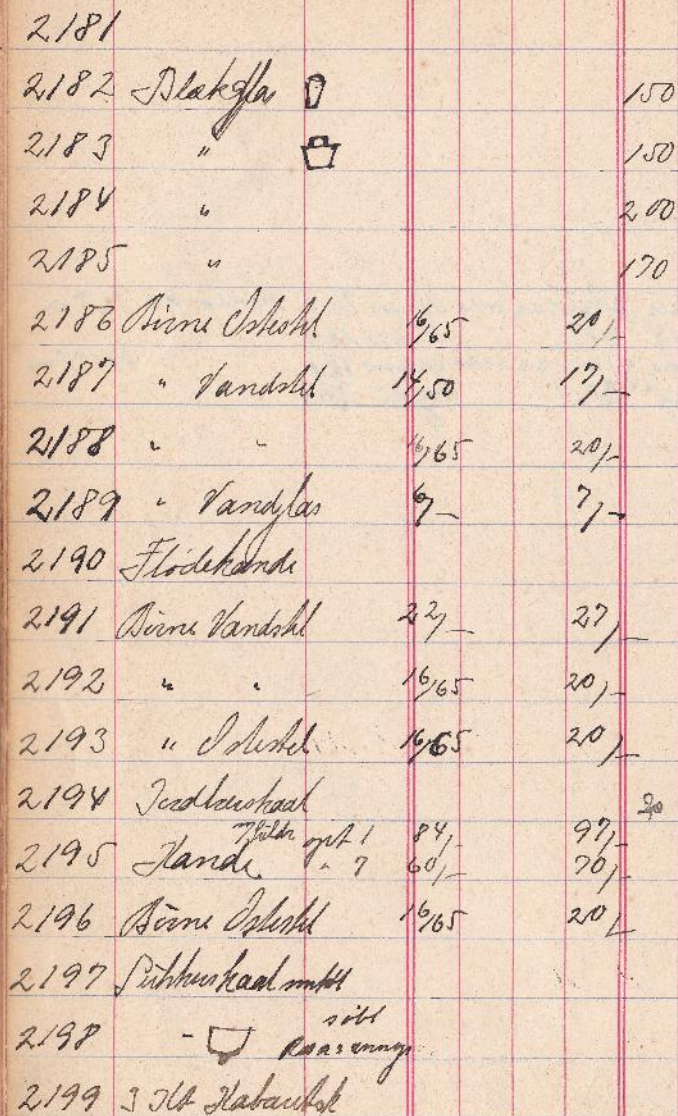 2181
2182 Blækglas 150
2183 " 150
2184 " 200
2185 " 170
2186 Börne Istestel 16/65 20/-
2187 " Vandstel 14/50 17/-
2188 " " 16/65 20/-
2189 " Vandglas 6/- 7/-
2190 Flödekande
2191 Börne Vandstel 22/- 27/-
2192 " " 16/65 20/-
2193 " Istestel 16/65 20/-
2194 Jordbærskaal 20
opt 1 84/- 97/-
2195 Kande " 7 60/- 70/-
2196 Börne Istestel 16/65 20/-
2197 Sukkerskaal
2198 "
2199 3 Kabaretsk